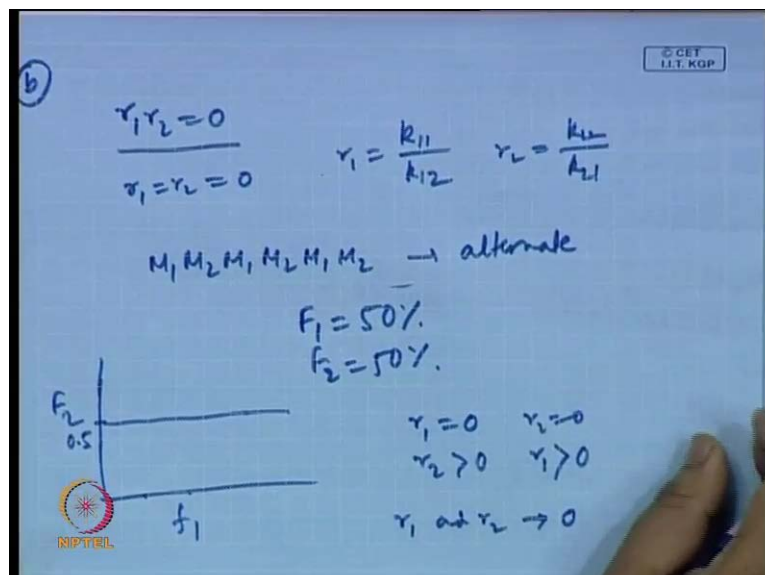 © CET
I.I.T. KGP
b
r₁r₂ = 0
r₁ = r₂ = 0
r₁ = k₁₁ / k₁₂
r₂ = k₁₂ / k₂₁
M₁ M₂ M₁ M₂ M₁ M₂ → alternate
F₁ = 50%.
F₂ = 50%.
F₂
0.5
f₁
r₁ = 0 r₂ = 0
r₂ > 0 r₁ > 0
r₁ and r₂ → 0
NPTEL